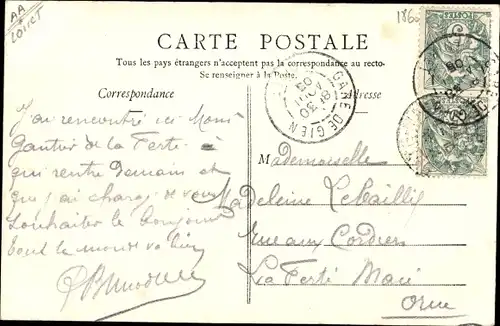 AA
LOIRET
186
CARTE POSTALE
Tous les pays étrangers n'acceptent pas la correspondance au recto.
Se renseigner à la Poste.
Correspondance
Adresse
GARE DE GIEN
8 30
AOUT
POSTES
J'ai rencontré ici Mons
Gautier de la Ferté
qui rentre demain et
que j'ai chargé de vous
souhaiter le bonjour
tout le monde va bien
Mademoiselle
Madeleine Lebailly
Rue aux Cordiers
La Ferté Macé
Orne